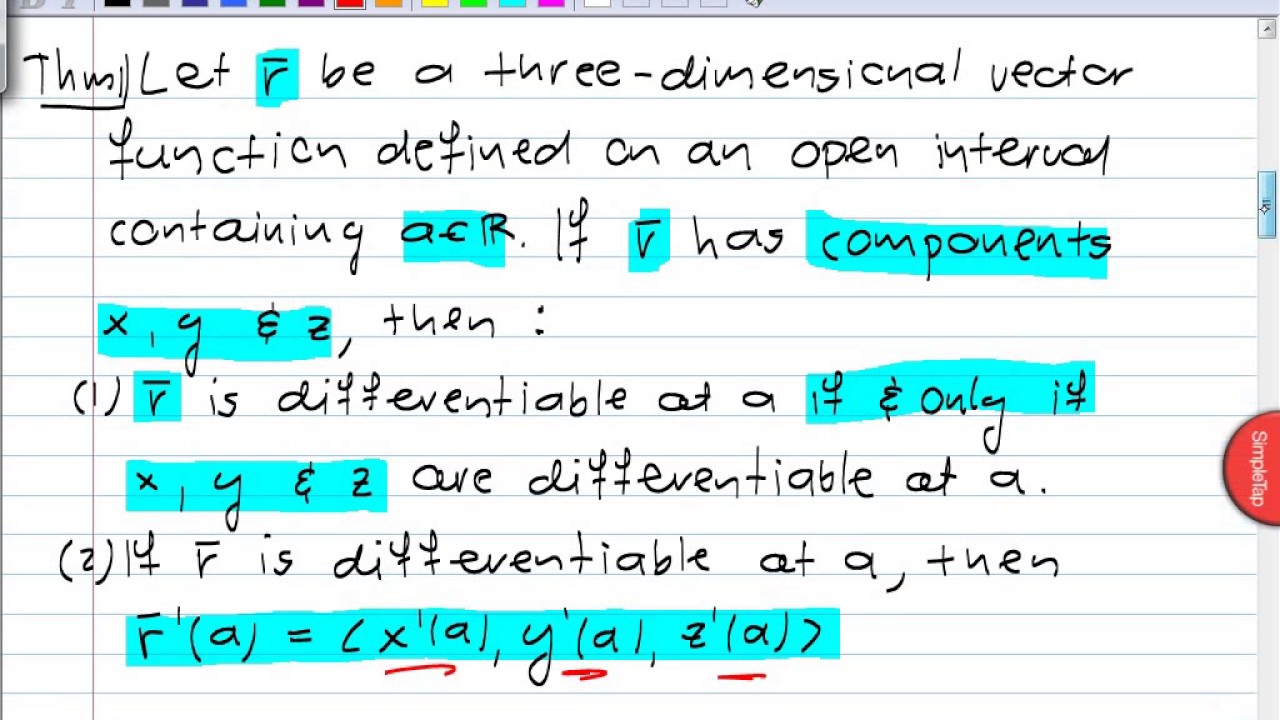 Thm) Let r̄ be a three-dimensional vector
function defined on an open interval
containing a∈ℝ. If r̄ has components
x, y & z, then :
(1) r̄ is differentiable at a if & only if
x, y & z are differentiable at a.
(2) If r̄ is differentiable at a, then
r̄'(a) = ⟨x'(a), y'(a), z'(a)⟩
SimpleTap